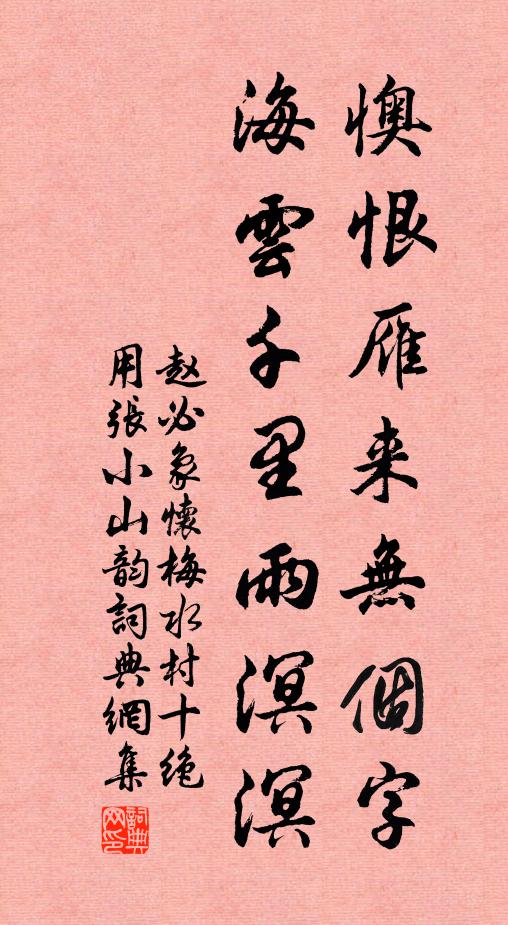 懊恨雁来無個字
海雲千里雨溟溟
赵必象懷梅水村十绝
用張小山韵詞典網集
詞典网印